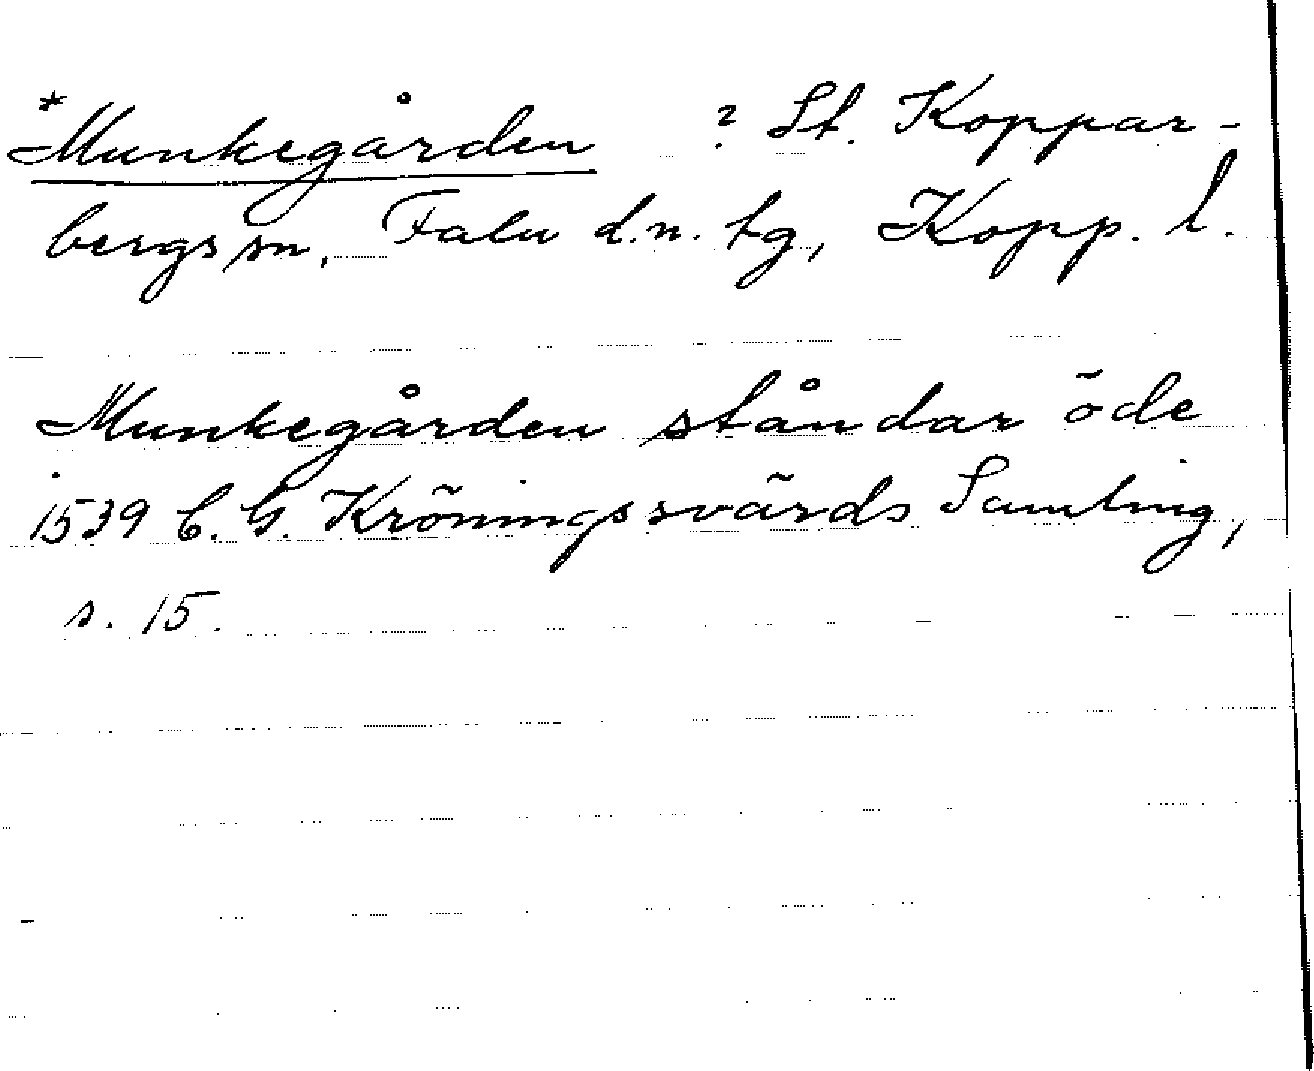 *Munkegården ? St. Koppar-
bergs sn, Falu d.n. tg, Kopp. l.
Munkegården ståndar öde
1539 C. G. Kröningssvärds Samling,
s. 15.